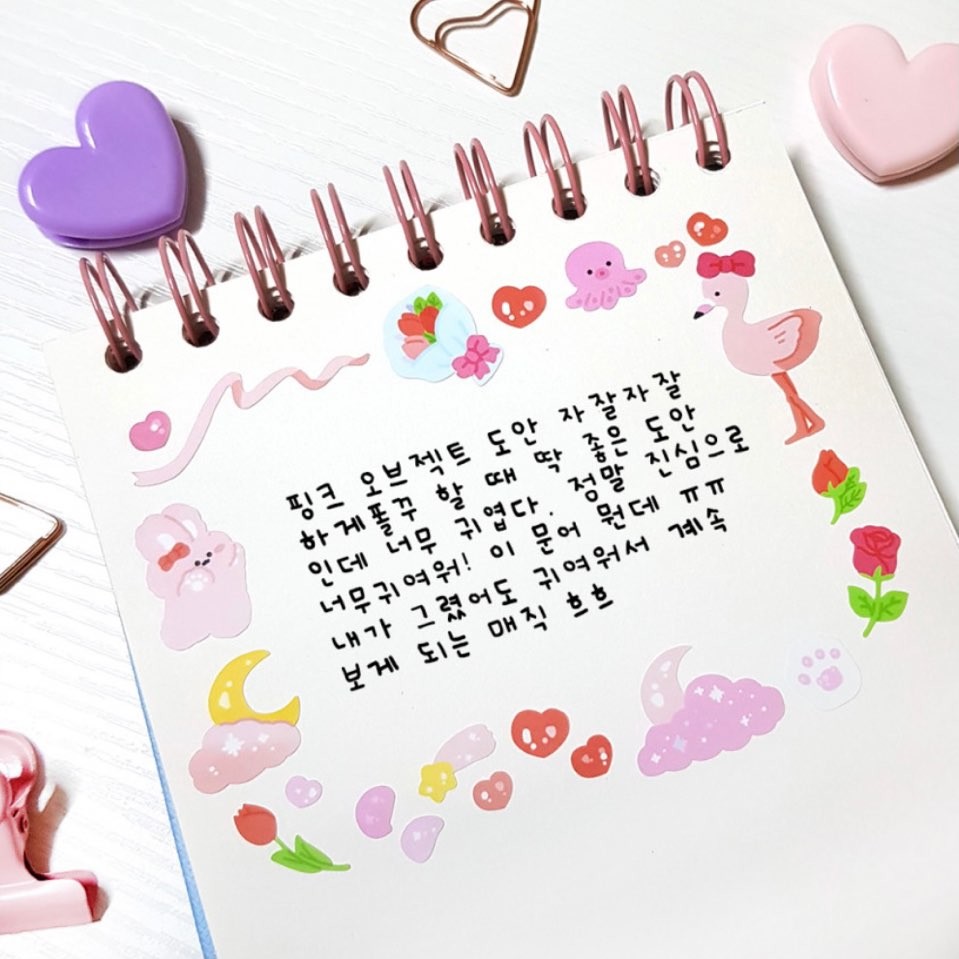 핑크 오브젝트 도안 자잘자잘
하게폴꾸 할 때 딱 좋은 도안
인데 너무 귀엽다. 정말 진심으로
너무귀여워! 이 문어 뭔데 ㅠㅠ
내가 그렸어도 귀여워서 계속
보게 되는 매직 흐흐